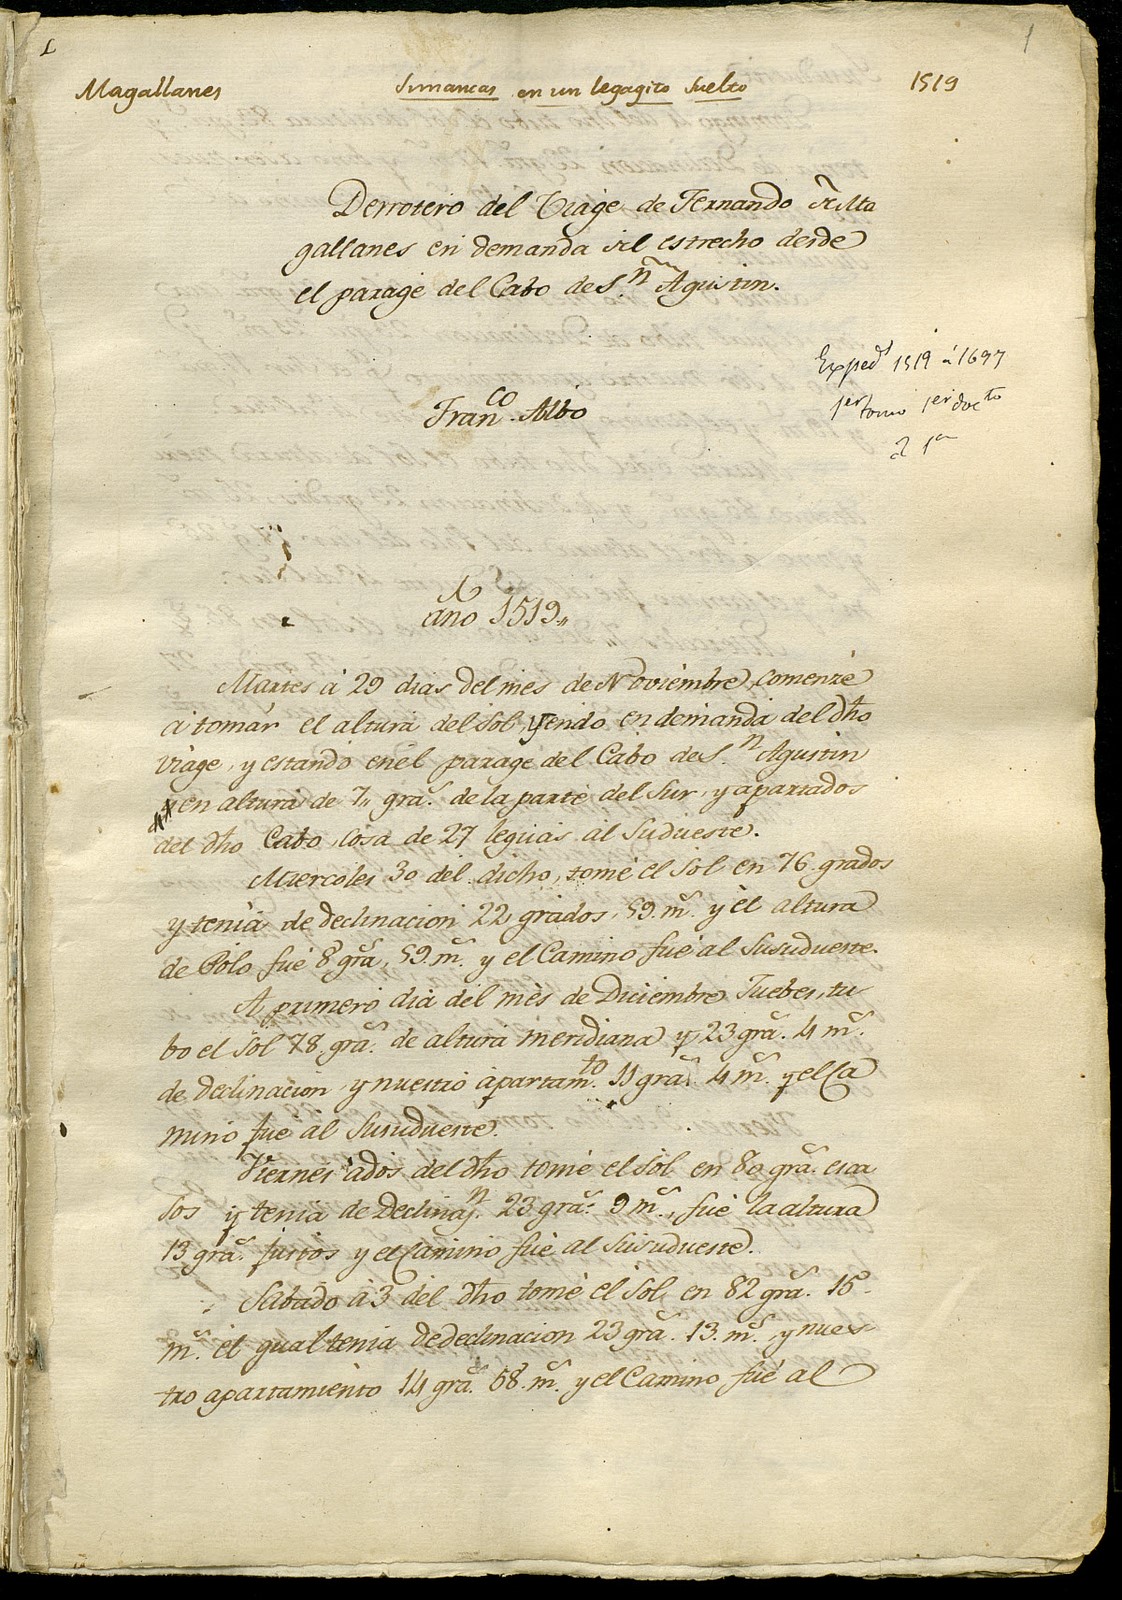 1
1
Magallanes Simancas en un legagito suelto 1519
Derrotero del Viage de Fernando de Ma
gallanes en demanda del estrecho desde
el parage del Cabo de S.n Agustin.
Exped.s 1519 á 1697
1er tomo 1er docto
Fran.co Albo
año 1519,,
Martes á 29 dias del mes de Noviembre, comenzé
á tomar el altura del Sol, yendo en demanda del dho
viage, y estando en el parage del Cabo de S.n Agustin
y en altura de 7,, gra.s de la parte del Sur, y apartados
del dho Cabo, cosa de 27 leguas al Sudueste.
Miercoles 30 del dicho, tomé el Sol en 76 grados
y tenia de declinacion 22 grados, 59 m.s y el altura
de Polo fué 8 gra.s 59 m.s y el Camino fué al Susudueste.
A primero dia del mes de Diciembre Juebes, tu
bo el Sol 78 gra.s de altura meridiana y 23 gra.s 4 m.s
de declinacion y nuestro apartam.to 11 gra.s 4 m.s y el Ca
mino fué al Susudueste.
Viernes á dos del dho tomé el Sol en 80 gra.s esca
sos y tenia de declinaj.n 23 gra.s 9 m.s, fué la altura
13 gra.s justos y el Camino fué al Susudueste.
Sabado á 3 del dho tomé el Sol en 82 gra.s 15
m.s el qual tenia de declinacion 23 gra.s 13 m.s, y nues
tro apartamiento 14 gra.s 58 m.s y el Camino fué al